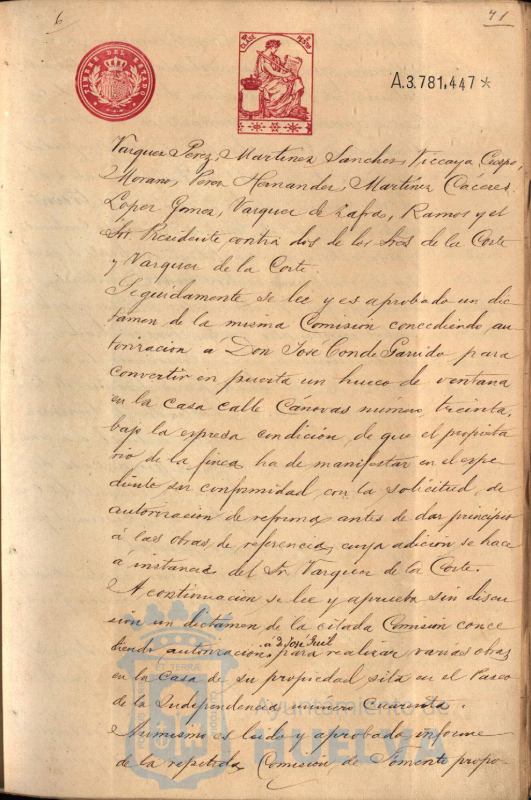 6
71
TIMBRE DEL ESTADO
CLASE
A.3.781,447*
Vazquez Perez, Martinez Sanchez, Vizcaya, Crespo,
Morano, Perez Hernandez, Martinez Cáceres,
López Gomez, Vazquez de Zafra, Ramos y el
Sr. Presidente contra dos de los Sres de la Corte
y Vazquez de la Corte.
Seguidamente se lee y es aprobado un dic
tamen de la misma Comisión concediendo au
torizacion á Don José Conde Garrido para
convertir en puerta un hueco de ventana
en la casa calle Cánovas número treinta,
bajo la expresa condición de que el propieta
rio de la finca ha de manifestar en el espe
diente su conformidad con la solicitud de
autorizacion de reforma antes de dar principio
á las obras de referencia, cuya adición se hace
á instancia del Sr. Vazquez de la Corte.
A continuacion se lee y aprueba sin discu
sión un dictámen de la citada Comisión conce
á D. José Guil
diendo autorizacion para realizar varias obras
en la casa de su propiedad sita en el Paseo
de la Independencia número cuarenta.
Asimismo es leido y aprobado informe
de la repetida Comisión de Fomento propo-
ET TERRAE
Ayuntamiento de
HUELVA